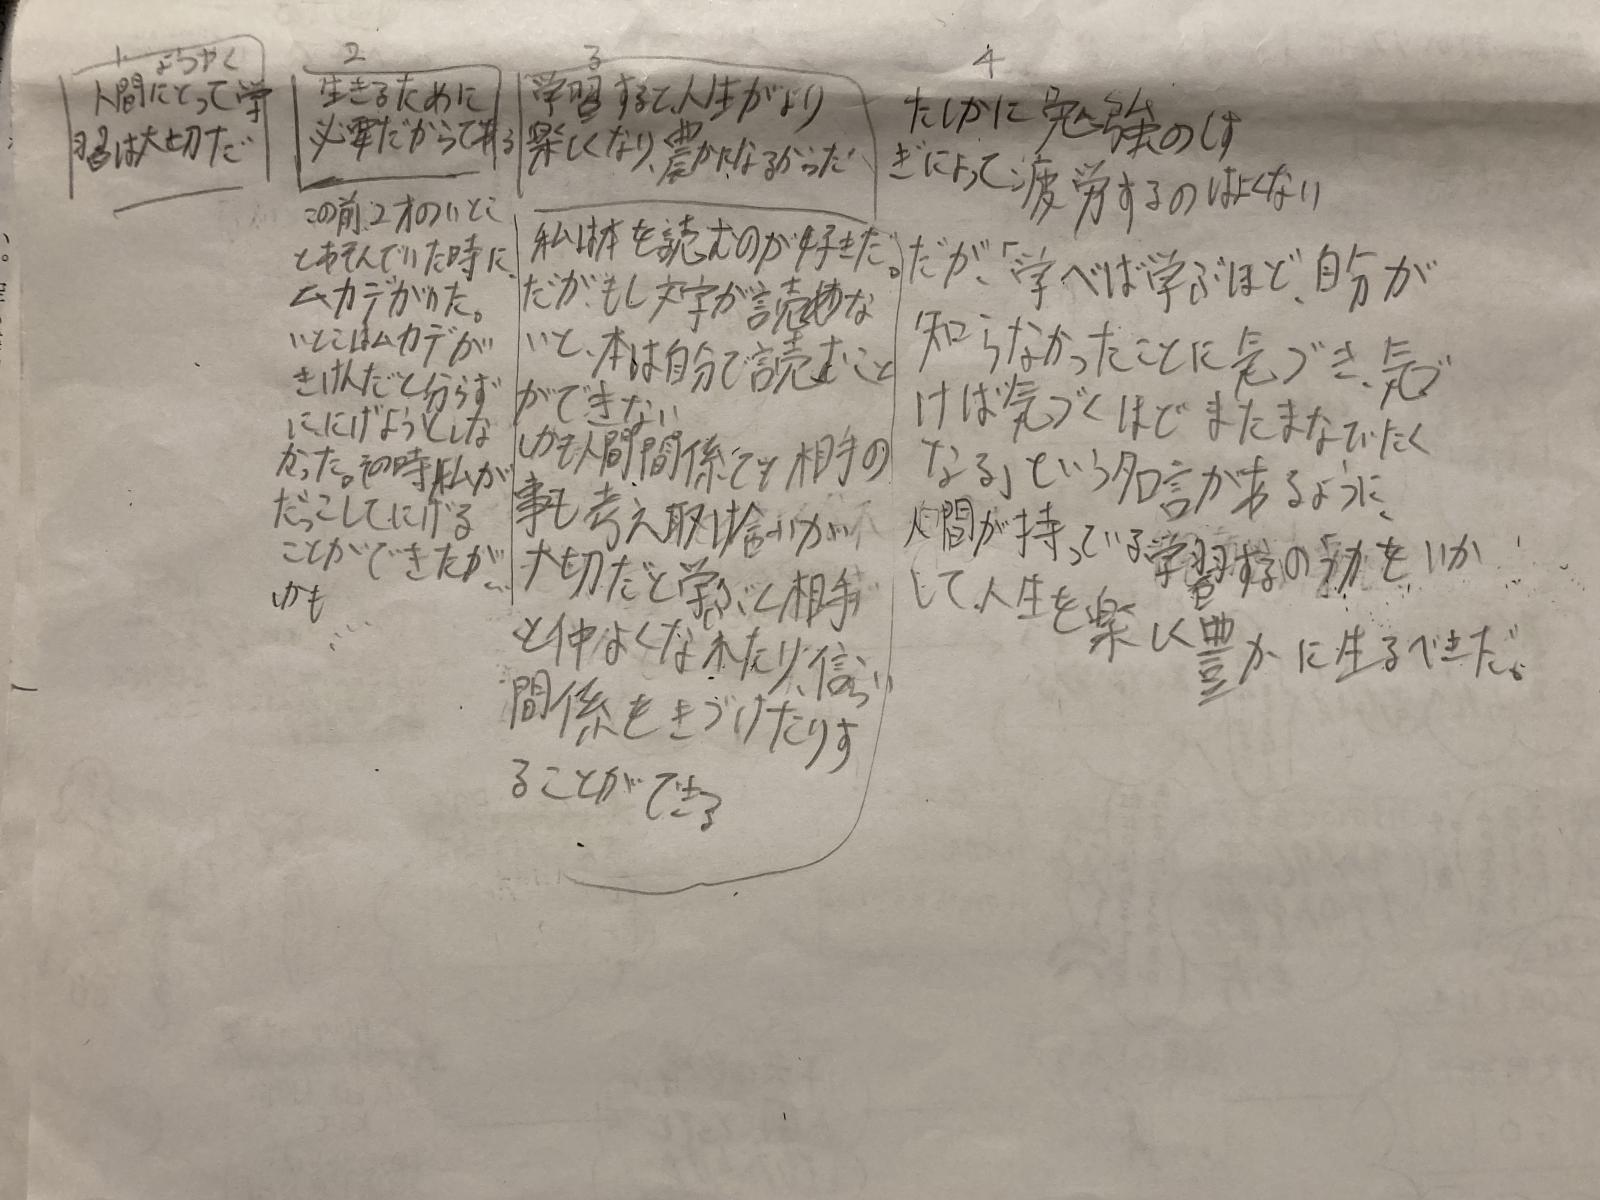 1 ようやく
人間にとって学
習は大切だ
2
生きるために
必要だからである
この前、2才のいとこ
とあそんでいた時に、
ムカデがいた。
いとこはムカデが
きけんだと分らず
に、にげようとしな
かった。その時私が
だっこしてにげる
ことができたが、
しかも
3
学習すると、人生がより
楽しくなり、豊かになるからだ
私は本を読むのが好きだ。
だが、もし文字が読めな
いと、本は自分で読むこと
ができない
しかも人間間係でも相手の
事も考え取り捨いが
大切だと学ぶと相手
と仲よくなれたり、信らい
間係をきづけたりす
ることができる
4
たしかに勉強のしす
ぎによって疲労するのはよくない
だが、「学べば学ぶほど、自分が
知らなかったことに気づき、気づ
けば気づくほどまたまなびたく
なる」という名言があるように、
人間が持っている学習するの力をいか
して、人生を楽しく豊かに生るべきだ。